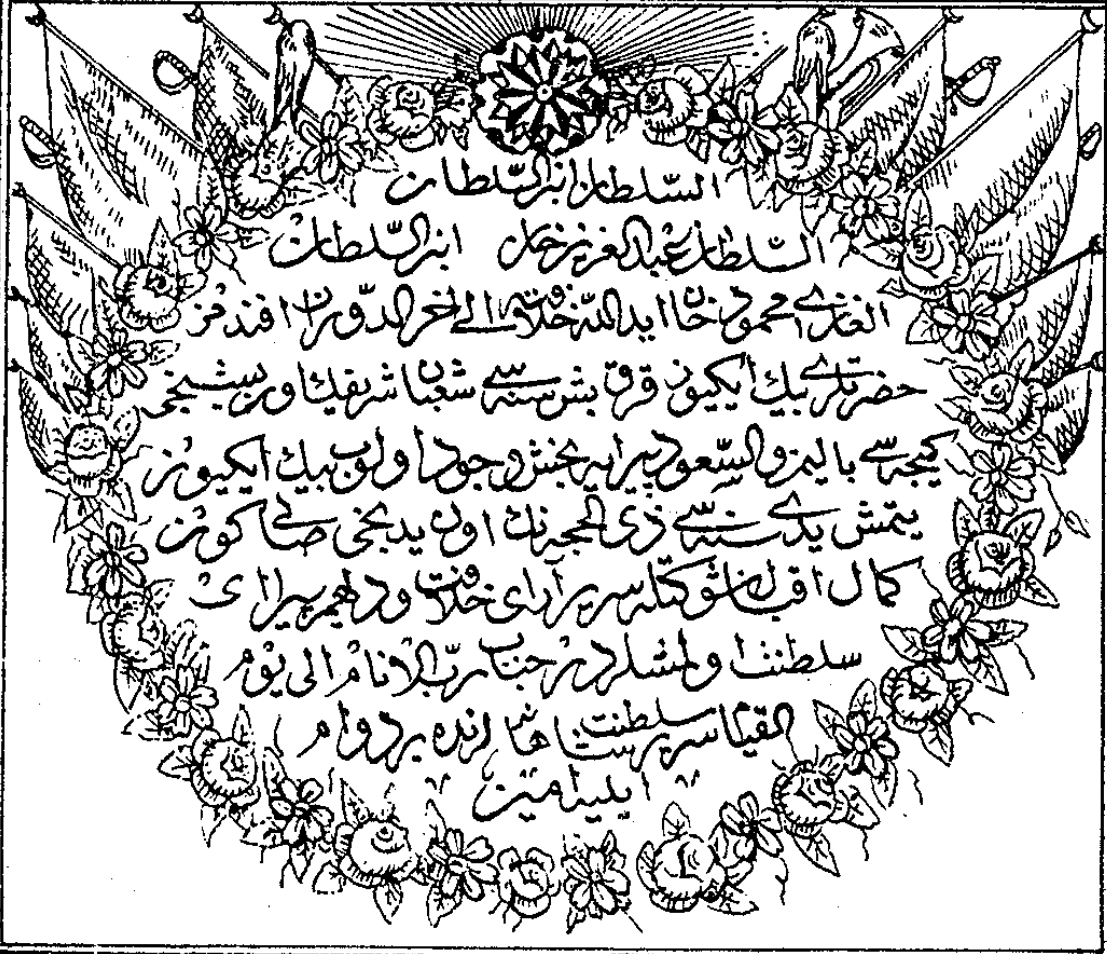 السّلطان ابن السّلطان
السّلطان عبد العزيز خان ابن السّلطان
الغازى محمود خان ايد الله خلافته الى آخر الدّوران افندمز
حضرتلرى بيك ايكيوز قرق بش سنه سى شعبان شريفينك اون بشنجى
كيجه سى باليمن والسّعود پيرايه بخش وجود اولوب بيك ايكيوز
يتمش يدى سنه سى ذى الحجه نك اون يدنجى صالى كونى
كمال اقبال شوكتله سريرآراى خلافت و ديهيم پيراى
سلطنت اولمشلردر جناب ربّ الانام الى يوم
القيام سرير سلطنت شاهانه لرنده بردوام
ايليه آمين